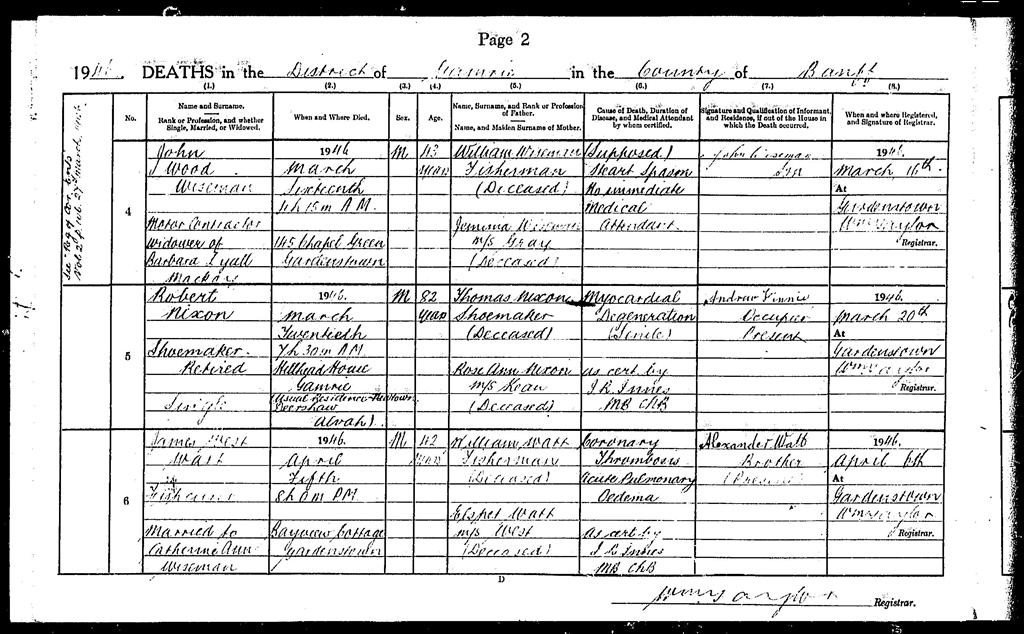 Page 2
1946. DEATHS in the District of Gamrie in the County of Banff
(1.) (2.) (3.) (4.) (5.) (6.) (7.) (8.)
No.
Name and Surname.
Rank or Profession, and whether Single, Married, or Widowed.
When and Where Died.
Sex.
Age.
Name, Surname, and Rank or Profession of Father.
Name, and Maiden Surname of Mother.
Cause of Death, Duration of Disease, and Medical Attendant by whom certified.
Signature and Qualification of Informant, and Residence, if out of the House in which the Death occurred.
When and where Registered, and Signature of Registrar.
See Reg of Cor. Ents
Vol 2 p. 27th March, 1946
4
John
Wood
Wiseman
Motor Contractor
Widower of
Barbara Lyall
Mackay
1946
March
Sixteenth
4h 15m A.M.
145 Chapel Green
Gardenstown
M
43
years
William Wiseman
Fisherman
(Deceased)
Jemima Wiseman
m/s Gray
(Deceased)
(Supposed)
Heart Spasm
No immediate
Medical
Attendant.
John Wiseman
Son
1946.
March 16th
At
Gardenstown
Wm Taylor
Registrar.
5
Robert
Nixon
Shoemaker.
Retired
Single
1946.
March
Twentieth
7h 30m P.M.
Hillhead House
Gamrie
(Usual Residence-Newtown
Alvah).
M
82
years
Thomas Nixon
Shoemaker
(Deceased)
Rose Ann Nixon
m/s Kean
(Deceased)
Myocardial
Degeneration
(Senile)
as cert by
J.R. Innes
MB ChB
Andrew Finnie
Occupier
Present
1946.
March 20th
At
Gardenstown
Wm Taylor
Registrar.
6
James West
Watt
Fisherman
Married to
Catherine Ann
Wiseman
1946.
April
Fifth
8h 0m PM
Bayview Cottage
Gardenstown
M
42
years
William Watt
Fisherman
(Deceased)
Elspet Watt
m/s West
(Deceased)
Coronary
Thrombosis
Acute Pulmonary
Oedema
as cert by
J R Innes
MB ChB
Alexander Watt
Brother
(Present)
1946.
April 6th
At
Gardenstown
Wm Taylor
Registrar.
D
Wm Taylor Registrar.